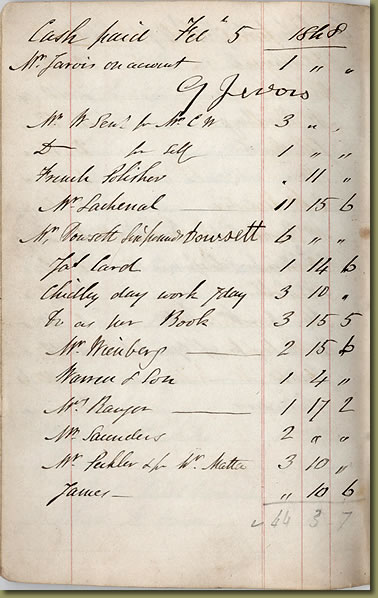 Cash paid Feb 5 1848
Mr Jarvis on account 1 " "
G Jervis
Mr W Senr for Mr C W 3 " "
Do for self 1 " "
French Polisher " 11 "
Mr Lachenal — 11 15 6
Mr Dowsett Six pounds Dowsett 6 " "
Jas Card 1 14 6
Chidley day work 7 day 3 10 "
Do as per Book 3 15 5
Mr Wienberg — 2 15 6
Warren & Son 1 4 "
Mrs Ranger — 1 17 2
Mr Saunders 2 " "
Mr for Mr 3 10 "
James — " 10 6
44 3 7